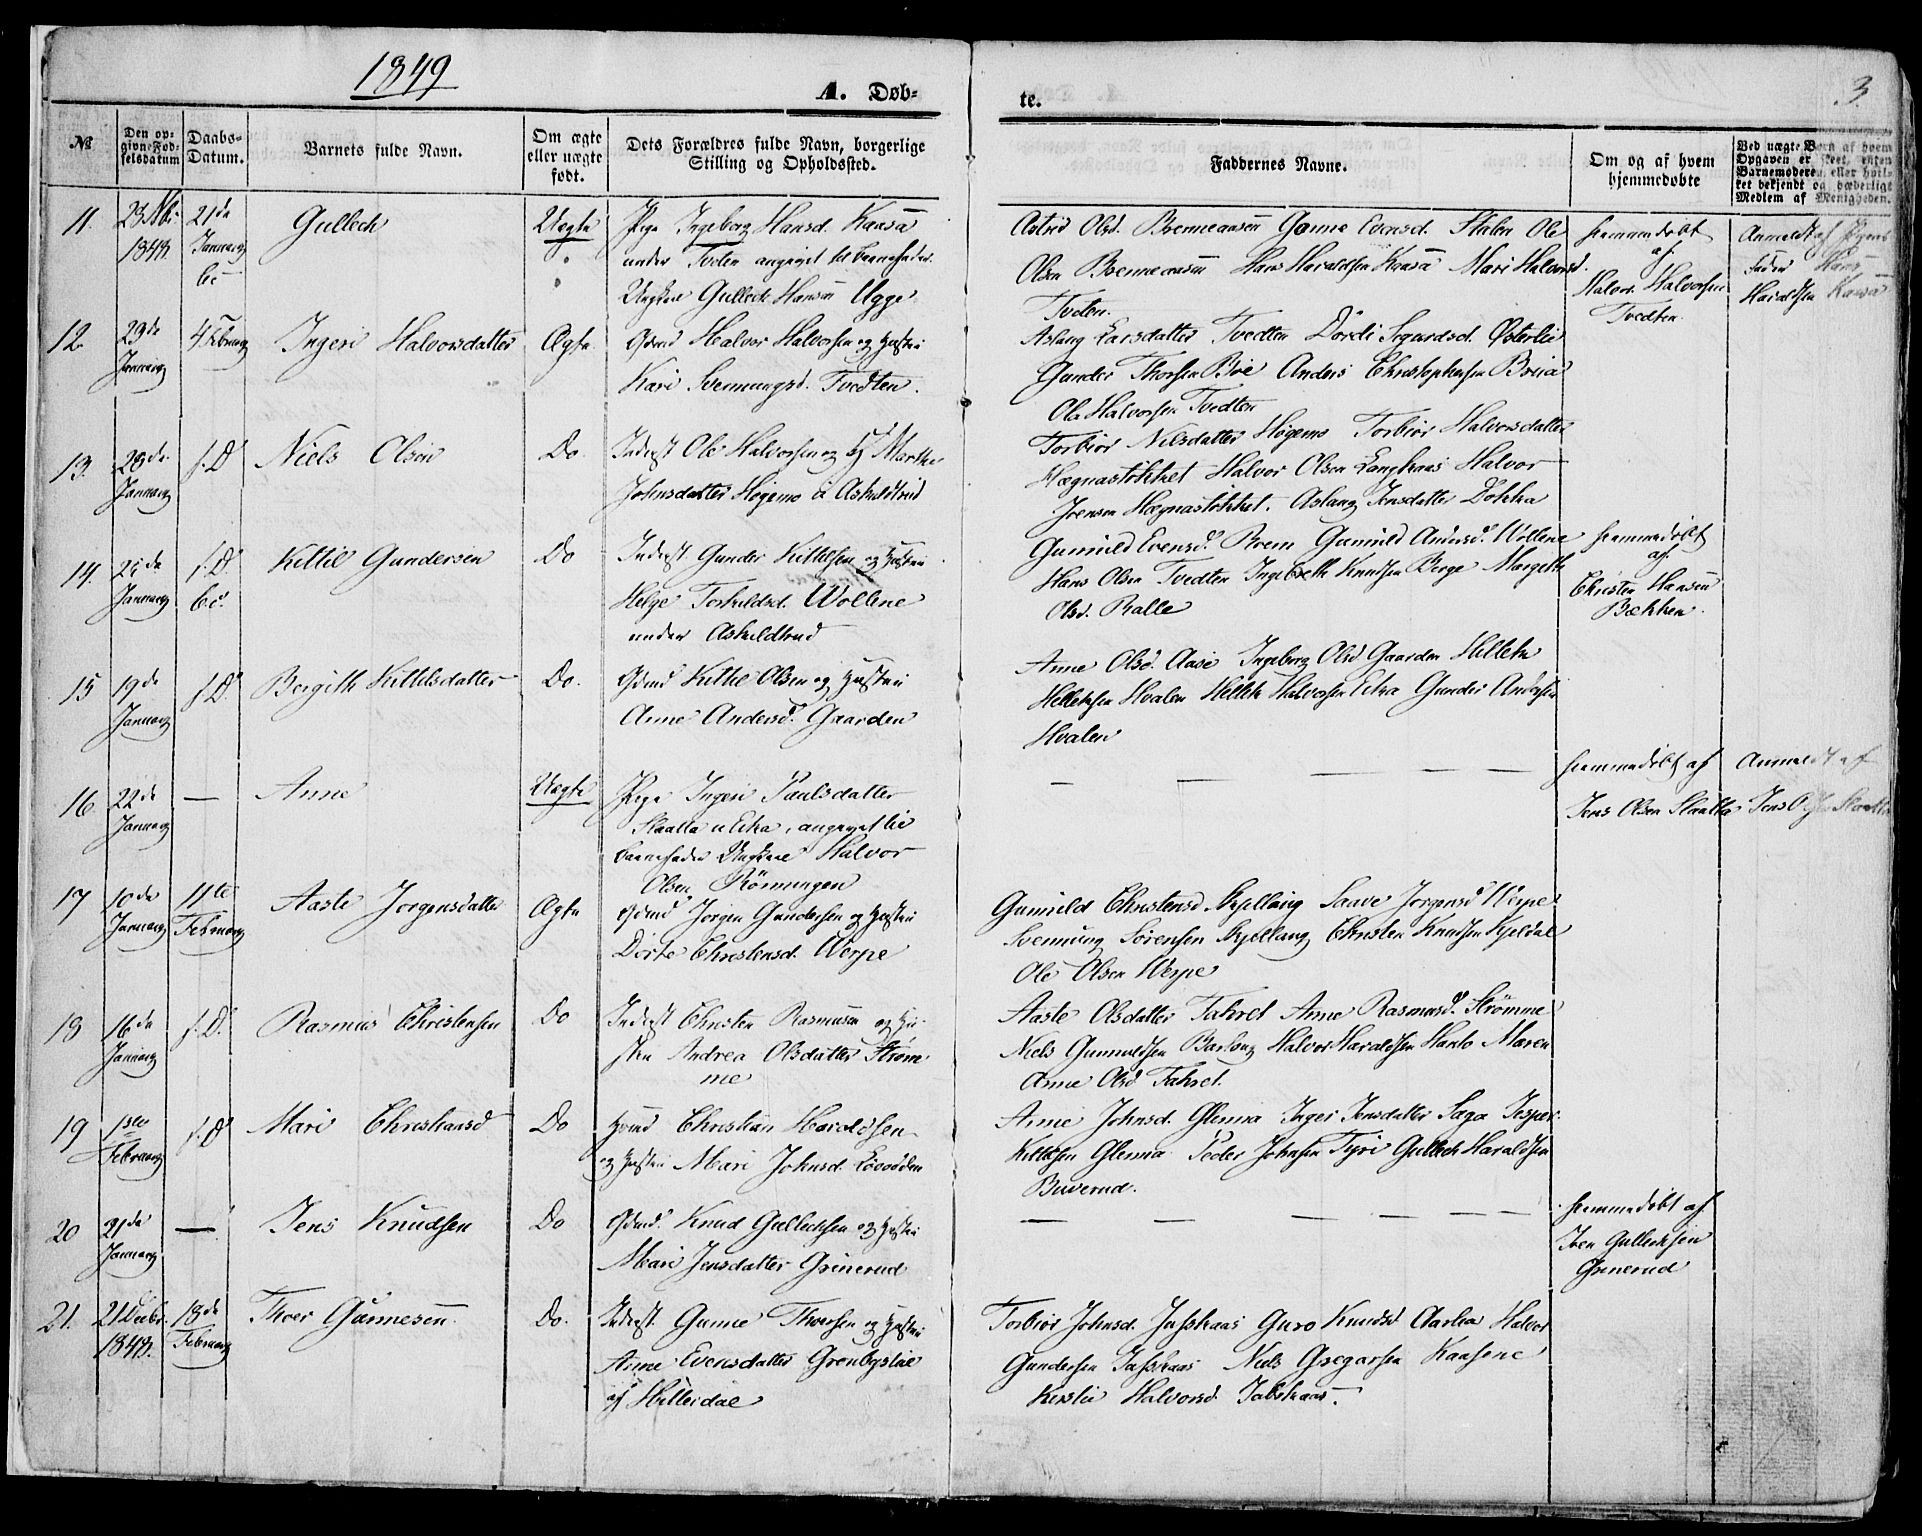 1849
A. Døb-
te.
3.
№
Den op-
givne Fød-
selsdatum
Daabs-
Datum.
Barnets fulde Navn.
Om ægte
eller uægte
født.
Dets Forældres fulde Navn, borgerlige
Stilling og Opholdssted.
Faddernes Navne.
Om og af hvem
hjemmedøbte
Ved uægte Børn af hvem
Opgaven er skeet, esten
Barnemodere eller hvil-
ket bekjendt og hæderligt
Medlem af Menigheden.
11. 1848. 21de Januar
Gullech
Uægte
Pige Ingeborg Hansd. Kaasa
under Tveten angivet til barnefader
Ungkarl Gullech Hansen Ugge
Astrid Olsd. Brenneaasen Gonne Evensd. Stalen Ole
Olsen Brenneaasen Hans Haraldsen Kaasa Mari Halvorsd.
Tveten.
hjemmedøbt
af
Halvor Halvorsen
Tvedten.
Anmeldt af Pigens
Fader Hans
Haraldsen Kaasa
12 29de Januar 4 Februar
Ingeri Halvorsdatter
Ægte
Gdmd Halvor Halvorsen og Hustru
Kari Svenungsd. Tvedten.
Aslaug Larsdatter Tvedten Dordi Sigurdsd. Østerlie
Gunder Thorsen Bøe Anders Christophersen
Ole Halvorsen Tvedten
13. 28de Januar s. D.
Niels Olsen
Do
Inderst Ole Halvorsen og H. Marthe
Johnsdatter Høgemo u Askildtrud
Torbiør Nilsdatter Høgemo Torbiør Halvorsdatter
Hægnastokket Halvor Olsen Langkaas Halvor
Joensen Hægnastokket. Aslaug Jensdatter Dokka
14. Januar s. D.
Kittil Gundersen
Do
Inderst Gunder Kittilsen og Hustru
Helge Torkildsd. Wollene
under Askildtrud
Gunnild Evensd. Brem Gunnild Andersd. Wollene
Hans Olsen Tvedten Ingebreth Knudsen Berge Margeth
Olsd. Ralle
hjemmedøbt
af
Christen Hansen
Bækken.
15 19de Januar s. D.
Bergith Kittilsdatter
Do.
Gdmd Kittil Olsen og Hustru
Anne Andersd. Gaarden
Anne Olsd. Aase Ingeborg Olsd Gaarden Hellek
Helleksen Hvalen Hellek Halvorsen Eika Gunder Andersen
Hvalen
16 22de Januar —
Anne
Uægte
Pige Ingeri Paulsdatter
Slaatta u Eika, angivet til
barnefader Ungkarl Halvor
Olsen Rønningen
— — — — —
hjemmedøbt af
Jens Olsen Slaatta
Anmeldt af
Jens Olsen Slaatta
17 10de Januar 11te Februar
Aaste Jorgensdatter
Ægte
Gdmd Jorgen Gundersen og Hustru
Dorte Christensd. Werpe
Gunnild Christensd. Skjellaug Saave Jorgensd Werpe
Svennung Sørensen Skjellaug Christen Knudsen Kjeldal
Ole Olsen Werpe
18 16de Januar s. D.
Rasmus Christensen
Do
Inderst Christen Rasmusen og Hu-
stru Andrea Olsdatter Strøm-
me
Aaste Olsdatter Tahret Anne Rasmusd. Strømme
Niels Gunnuldsen Halvor Haraldsen Hanto Maren
Anne Olsd. Tahret.
19 1ste Februar s. D.
Mari Christiansd
Do
Christian Haraldsen
og Hustru Mari Johnsd.
Anne Johnsd. Glenna Inger Jensdatter Saga Jesper
Kittilsen Glenna Peder Johnsen Tyri Gullech Haraldsen
Buverud.
20 21de Januar —
Jens Knudsen
Do
Gdmd. Knud Gullechsen og Hustru
Mari Jensdatter Grinerud
— — — — —
hjemmedøbt af
Iver Gullechsen
Grinerud
21. 21 Decbr. 1848. 18de Februar
Thoer Gunnesen
Do.
Inderst Gunne Thorsen og Hustru
Anne Evensdatter Grønbystue
af Hitterdal
Torbiør Johnsd. Jaspkaas Guro Knudsd Aarlia Halvor
Gundersen Jaspkaas Niels Gregarsen Kaasene
Kirstie Halvorsd. Jabskaas.